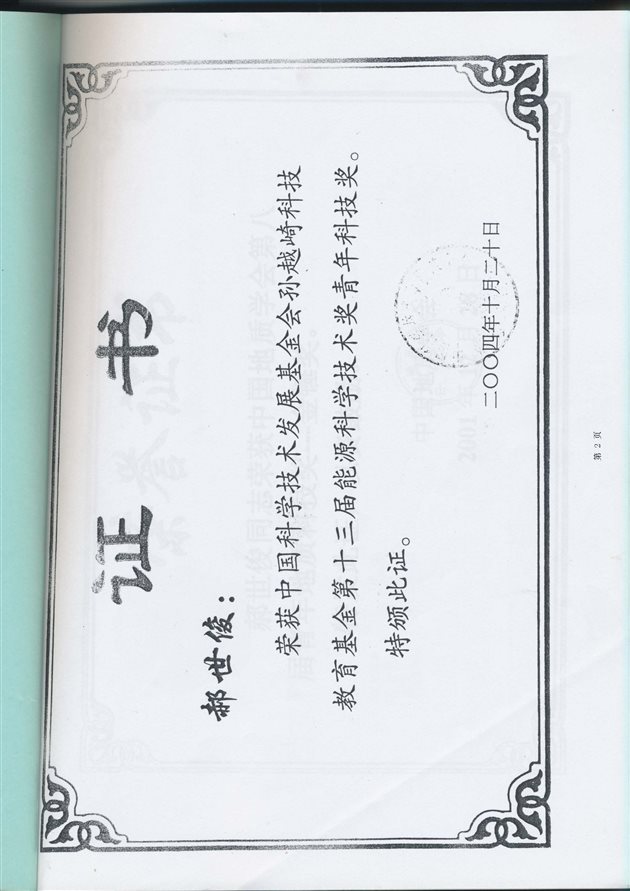 证书
郝世俊：
荣获中国科学技术发展基金会孙越崎科技
教育基金第十三届能源科学技术奖青年科技奖。
特颁此证。
二〇〇四年十月二十日
第 2 页